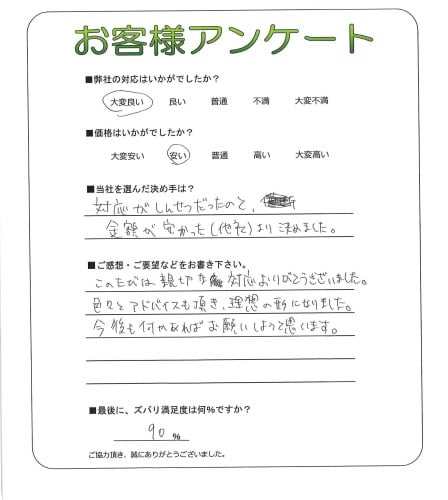 お客様アンケート
■弊社の対応はいかがでしたか？
大変良い 良い 普通 不満 大変不満
■価格はいかがでしたか？
大変安い 安い 普通 高い 大変高い
■当社を選んだ決め手は？
対応がしんせつだったので、
金額が安かった(他社)より決めました。
■ご感想・ご要望などをお書き下さい。
このたびは親切な対応ありがとうございました。
色々とアドバイスも頂き、理想の形になりました。
今後も何かあればお願いしようと思います。
■最後に、ズバリ満足度は何％ですか？
90 %
ご協力頂き、誠にありがとうございました。